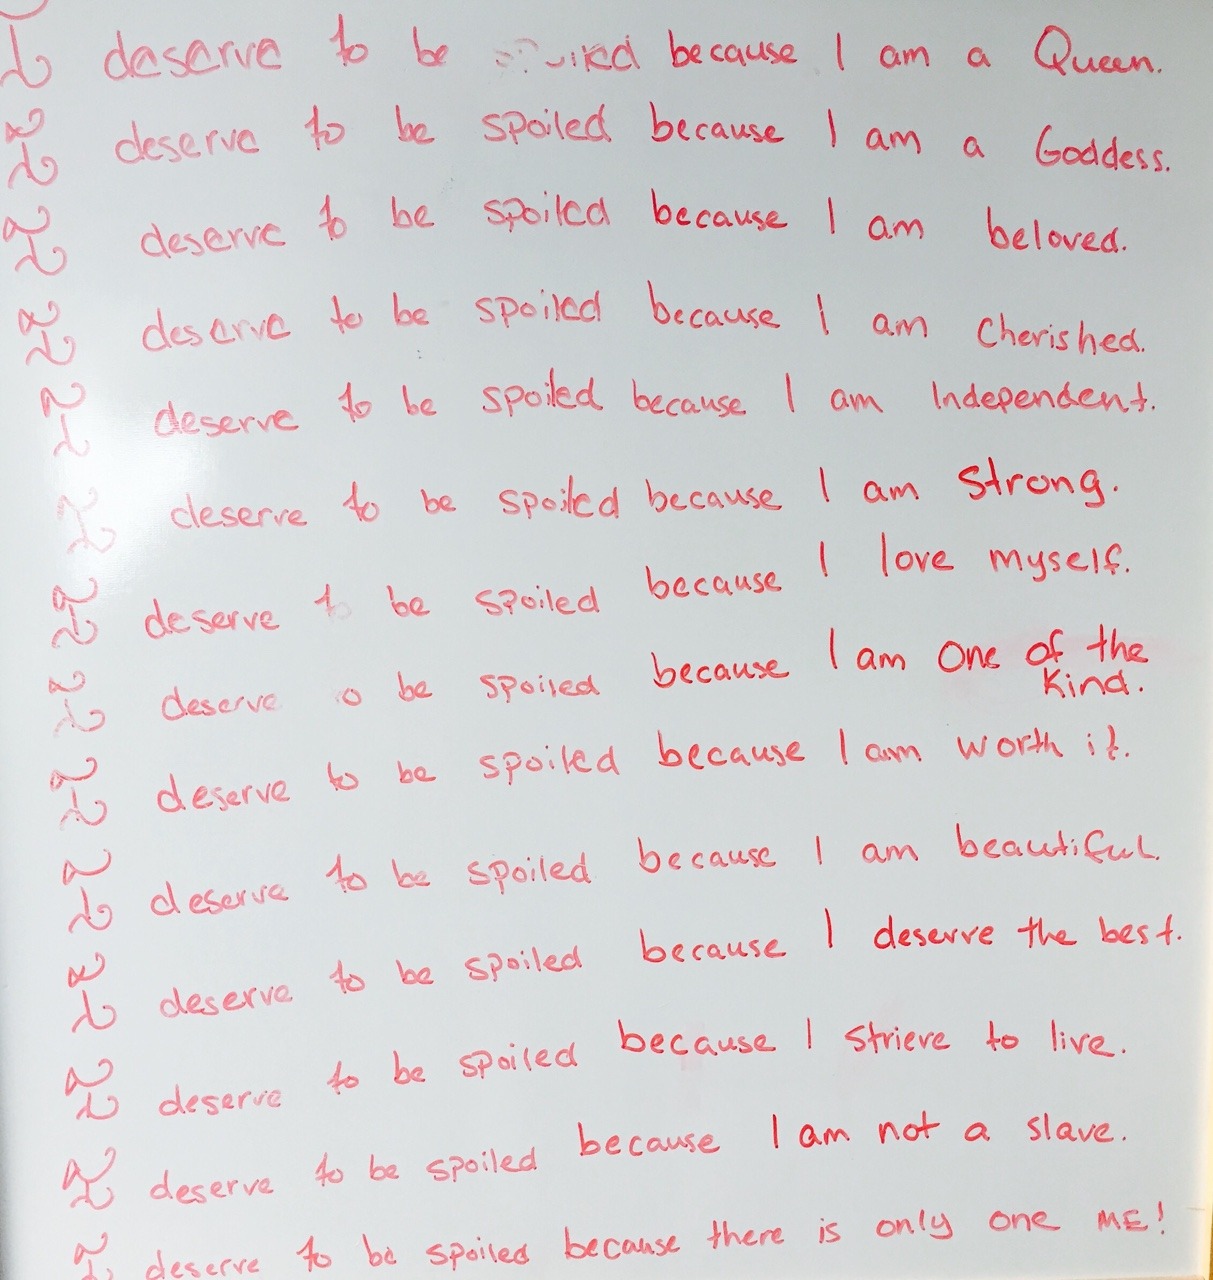 I deserve to be spoiled because I am a Queen.
I deserve to be spoiled because I am a Goddess.
I deserve to be spoiled because I am beloved.
I deserve to be spoiled because I am Cherished.
I deserve to be spoiled because I am Independent.
I deserve to be spoiled because I am Strong.
I deserve to be spoiled because I love myself.
I deserve to be spoiled because I am One of the
Kind.
I deserve to be spoiled because I am worth it.
I deserve to be spoiled because I am beautiful.
I deserve to be spoiled because I deserve the best.
I deserve to be spoiled because I strieve to live.
I deserve to be spoiled because I am not a slave.
I deserve to be spoiled because there is only one ME!